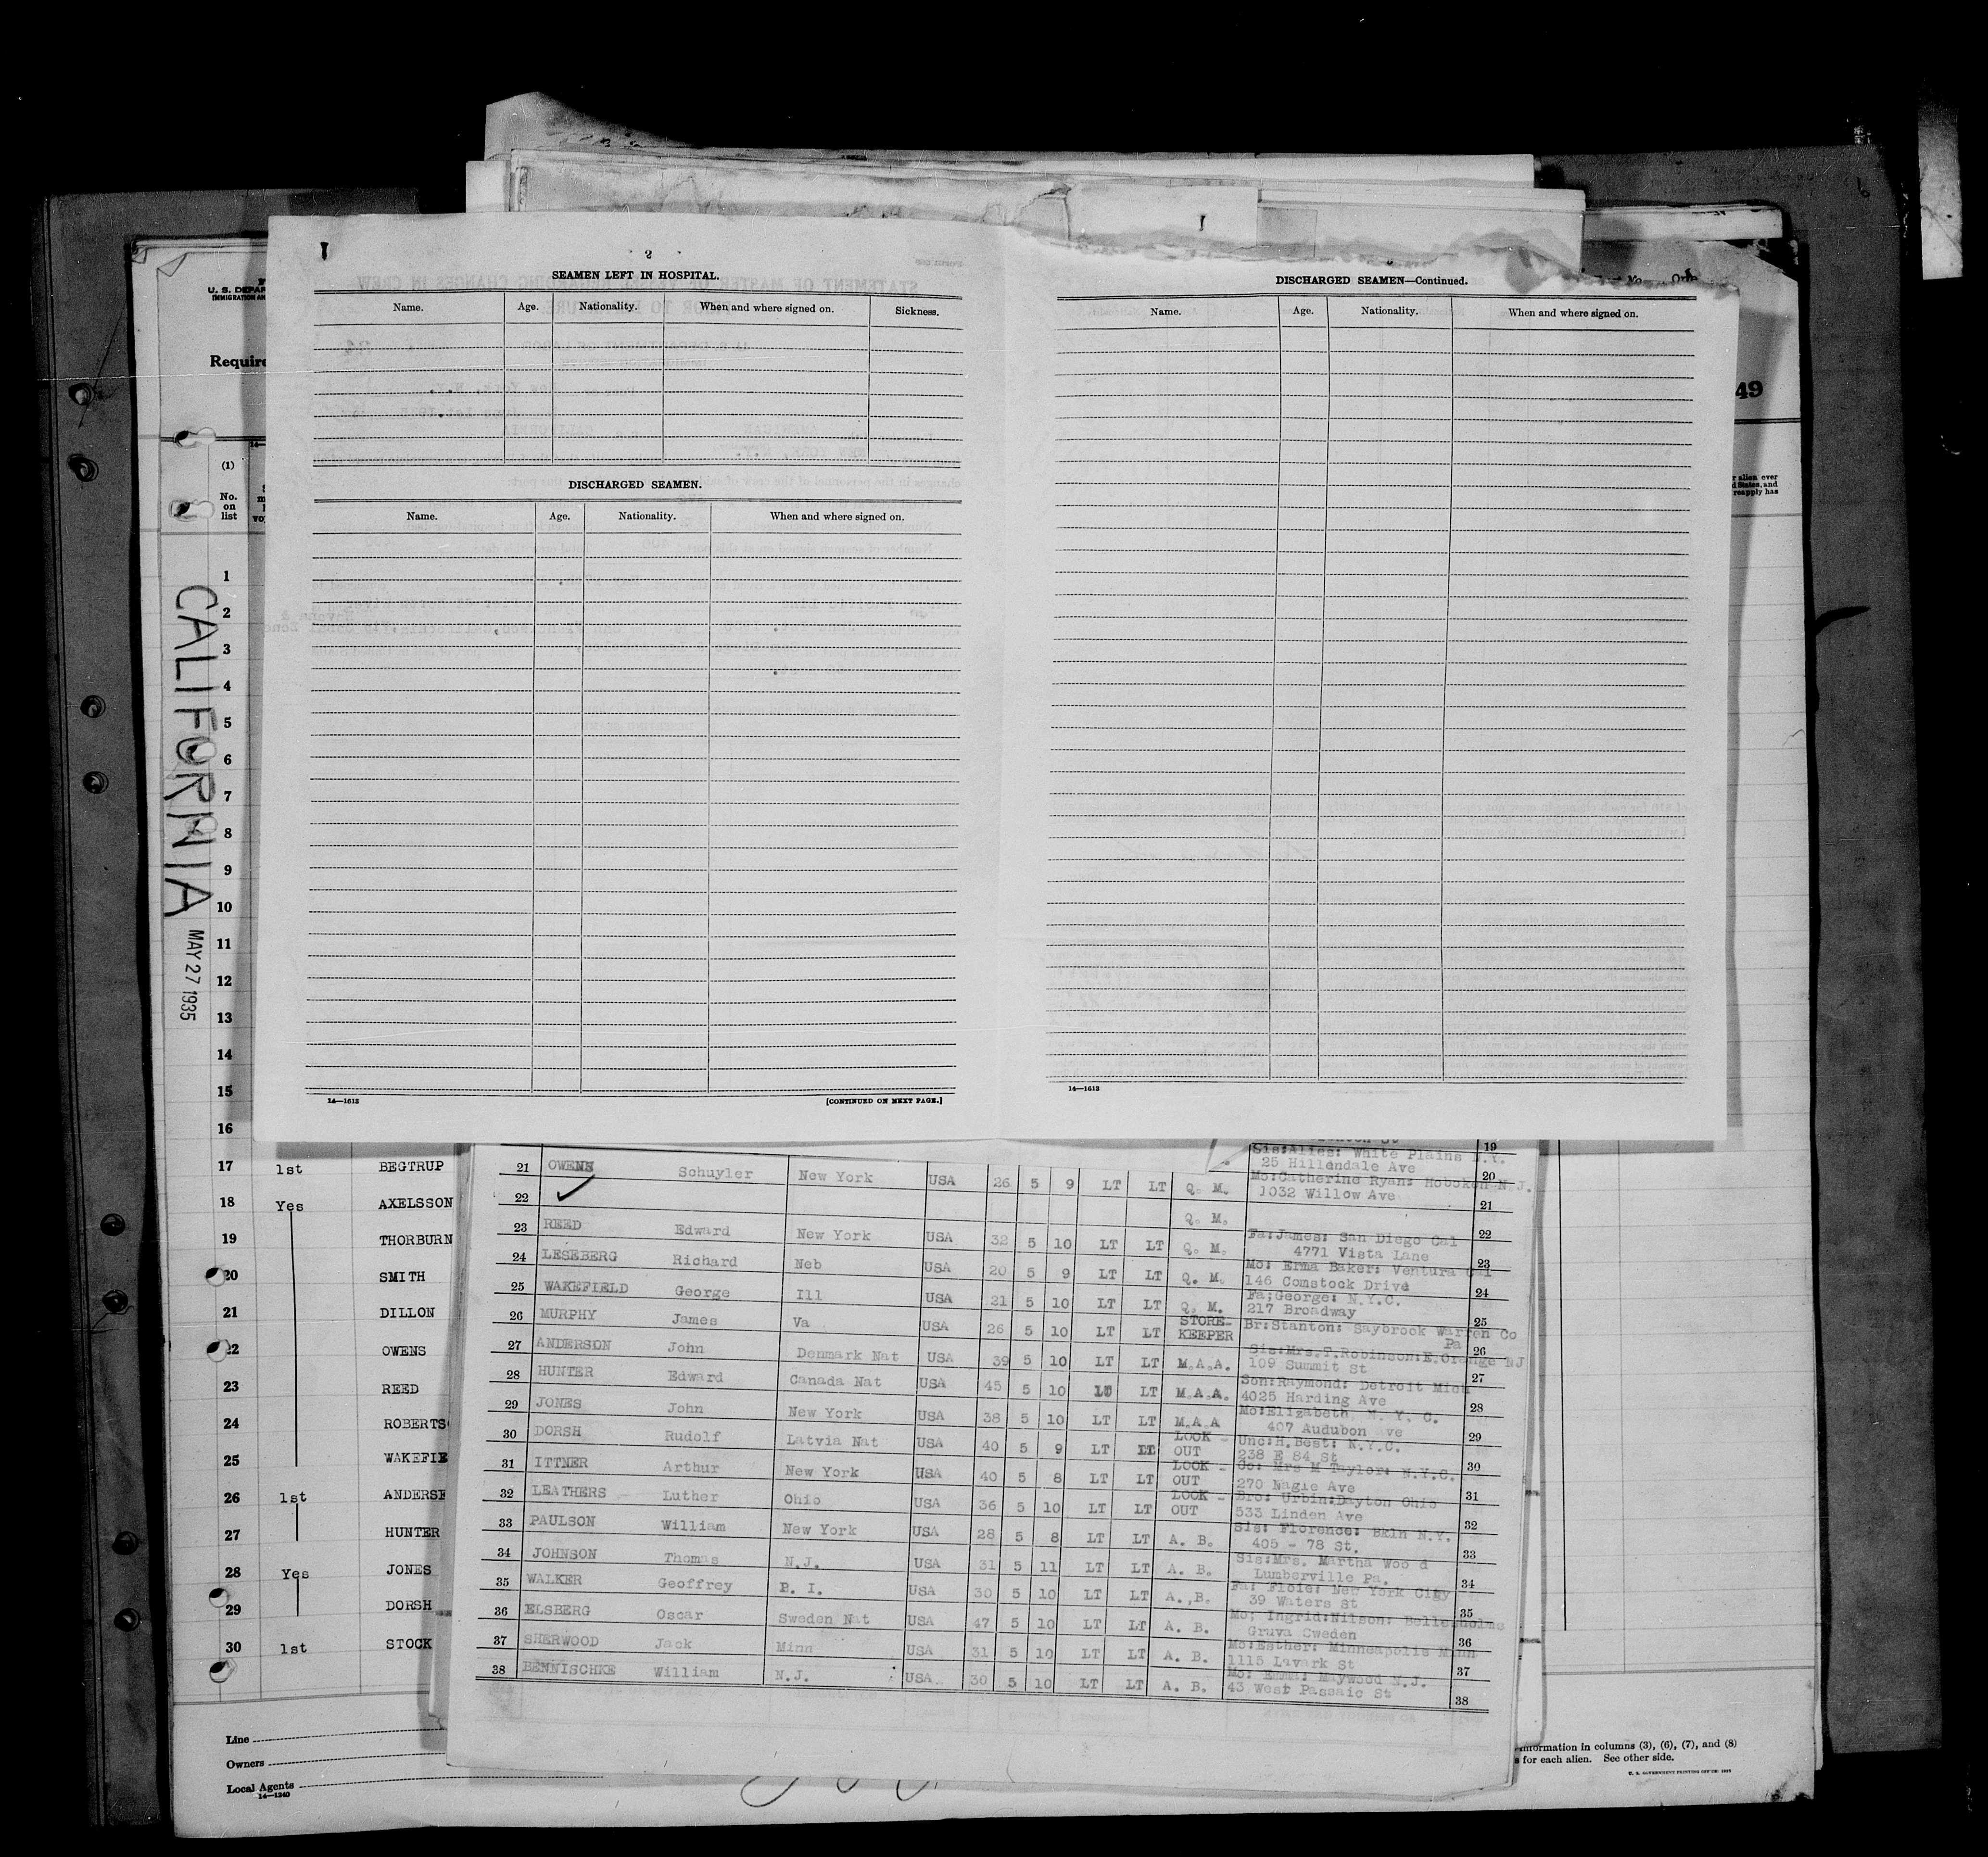 2
SEAMEN LEFT IN HOSPITAL.
Name. Age. Nationality. When and where signed on. Sickness.
DISCHARGED SEAMEN.
Name. Age. Nationality. When and where signed on.
14—1612
[CONTINUED ON NEXT PAGE.]
DISCHARGED SEAMEN—Continued.
Name. Age. Nationality. When and where signed on.
14—1613
U. S. DEPAR
IMMIGRATION AN
Require
49
(1)
No.
on
list
r alien ever
d States, and
reapply has
CALIFORNIA
MAY 27 1935
1
2
3
4
5
6
7
8
9
10
11
12
13
14
15
16
17 1st BEGTRUP
18 Yes AXELSSON
19 THORBURN
20 SMITH
21 DILLON
22 OWENS
23 REED
24 ROBERTS
25 WAKEFIE
26 1st ANDERSE
27 HUNTER
28 Yes JONES
29 DORSH
30 1st STOCK
Line
Owners
Local Agents
14—1240
19
Sis:Alice: White Plains N.Y.
25 Hillendale Ave 20
21 OWENS Schuyler New York USA 26 5 9 LT LT Q. M. Mo:Catherine Ryan: Hoboken N.J.
1032 Willow Ave 21
22 Q. M. 22
23 REED Edward New York USA 32 5 10 LT LT Q. M. Fa:James: San Diego Cal
4771 Vista Lane 23
24 LESEBERG Richard Neb USA 20 5 9 LT LT Q. M. Mo: Erma Baker: Ventura Cal
146 Comstock Drive 24
25 WAKEFIELD George Ill USA 21 5 10 LT LT Q. M. Fa;George: N.Y.C.
217 Broadway 25
26 MURPHY James Va USA 26 5 10 LT LT STORE-KEEPER Br:Stanton: Saybrook Warren Co
Pa 26
27 ANDERSON John Denmark Nat USA 39 5 10 LT LT M.A.A. Sis:Mrs.T.Robinson:E.Orange NJ
109 Summit St 27
28 HUNTER Edward Canada Nat USA 45 5 10 LT LT M.A.A. Son:Raymond: Detroit Mich
4025 Harding Ave 28
29 JONES John New York USA 38 5 10 LT LT M.A.A Mo:Elizabeth, N. Y. C.
407 Audubon Ave 29
30 DORSH Rudolf Latvia Nat USA 40 5 9 LT LT LOOK - OUT Unc:H.Best: N.Y.C.
238 E 84 St 30
31 ITTNER Arthur New York USA 40 5 8 LT LT LOOK - OUT Mrs M Taylor: N.Y.C.
270 Nagle Ave 31
32 LEATHERS Luther Ohio USA 36 5 10 LT LT LOOK - OUT Bro: Urbin:Dayton Ohio
533 Linden Ave 32
33 PAULSON William New York USA 28 5 8 LT LT A. B. Sis: Florence: Bkln N.Y.
405 - 78 St. 33
34 JOHNSON Thomas N.J. USA 31 5 11 LT LT A. B. Sis:Mrs. Martha Woo d
Lumberville Pa. 34
35 WALKER Geoffrey B. I. USA 30 5 10 LT LT A.,B. Fa: Floie: New York City
39 Waters St 35
36 ELSBERG Oscar Sweden Nat USA 47 5 10 LT LT A. B. Mo; Ingrid:Nilson:
Gruva Cweden 36
37 SHERWOOD Jack Minn USA 31 5 10 LT LT A. B. Mo:Esther: Minneapolis Minn
1115 Lavark St 37
38 BENNISCHKE William N.J. USA. 30 5 10 LT LT A. B. Mo: Emma: Maywood N.J.
43 West Passaic St 38
information in columns (3), (6), (7), and (8)
for each alien. See other side.